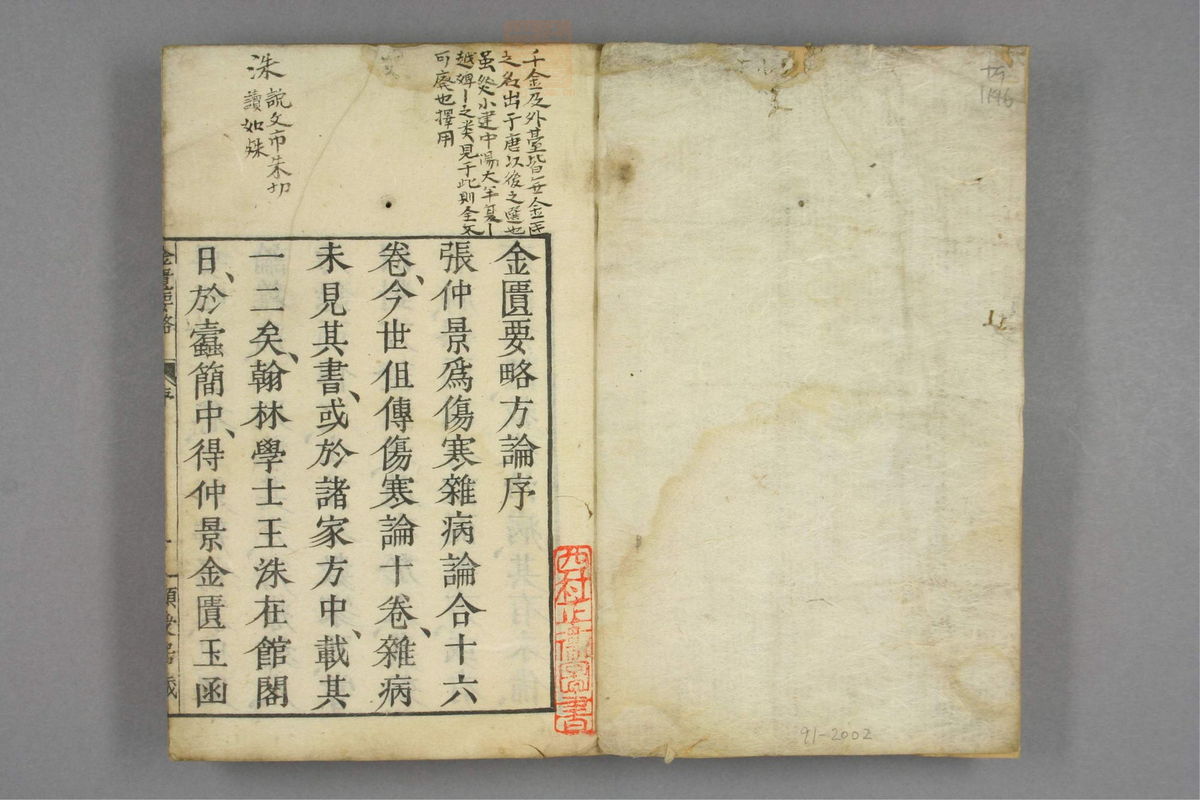 千金及外臺皆無金匱
之名出于唐以後之選也
虽然小建中湯大半夏丨
越婢丨之类見于此則全不
可廢也擇用
洙 說文市朱切
讀如殊
金匱要略方論序
張仲景爲傷寒雜病論合十六
卷、今世但傳傷寒論十卷、雜病
未見其書、或於諸家方中、載其
一二矣、翰林學士王洙在館閣
日、於蠹簡中、得仲景金匱玉函
金匱要略
序
一
書
91-2002